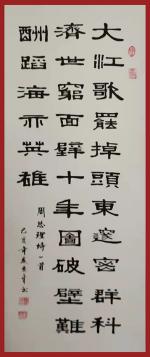 大江歌罷掉頭東邃密群科
濟世窮面壁十年圖破壁難
酬蹈海亦英雄
周总理诗一首